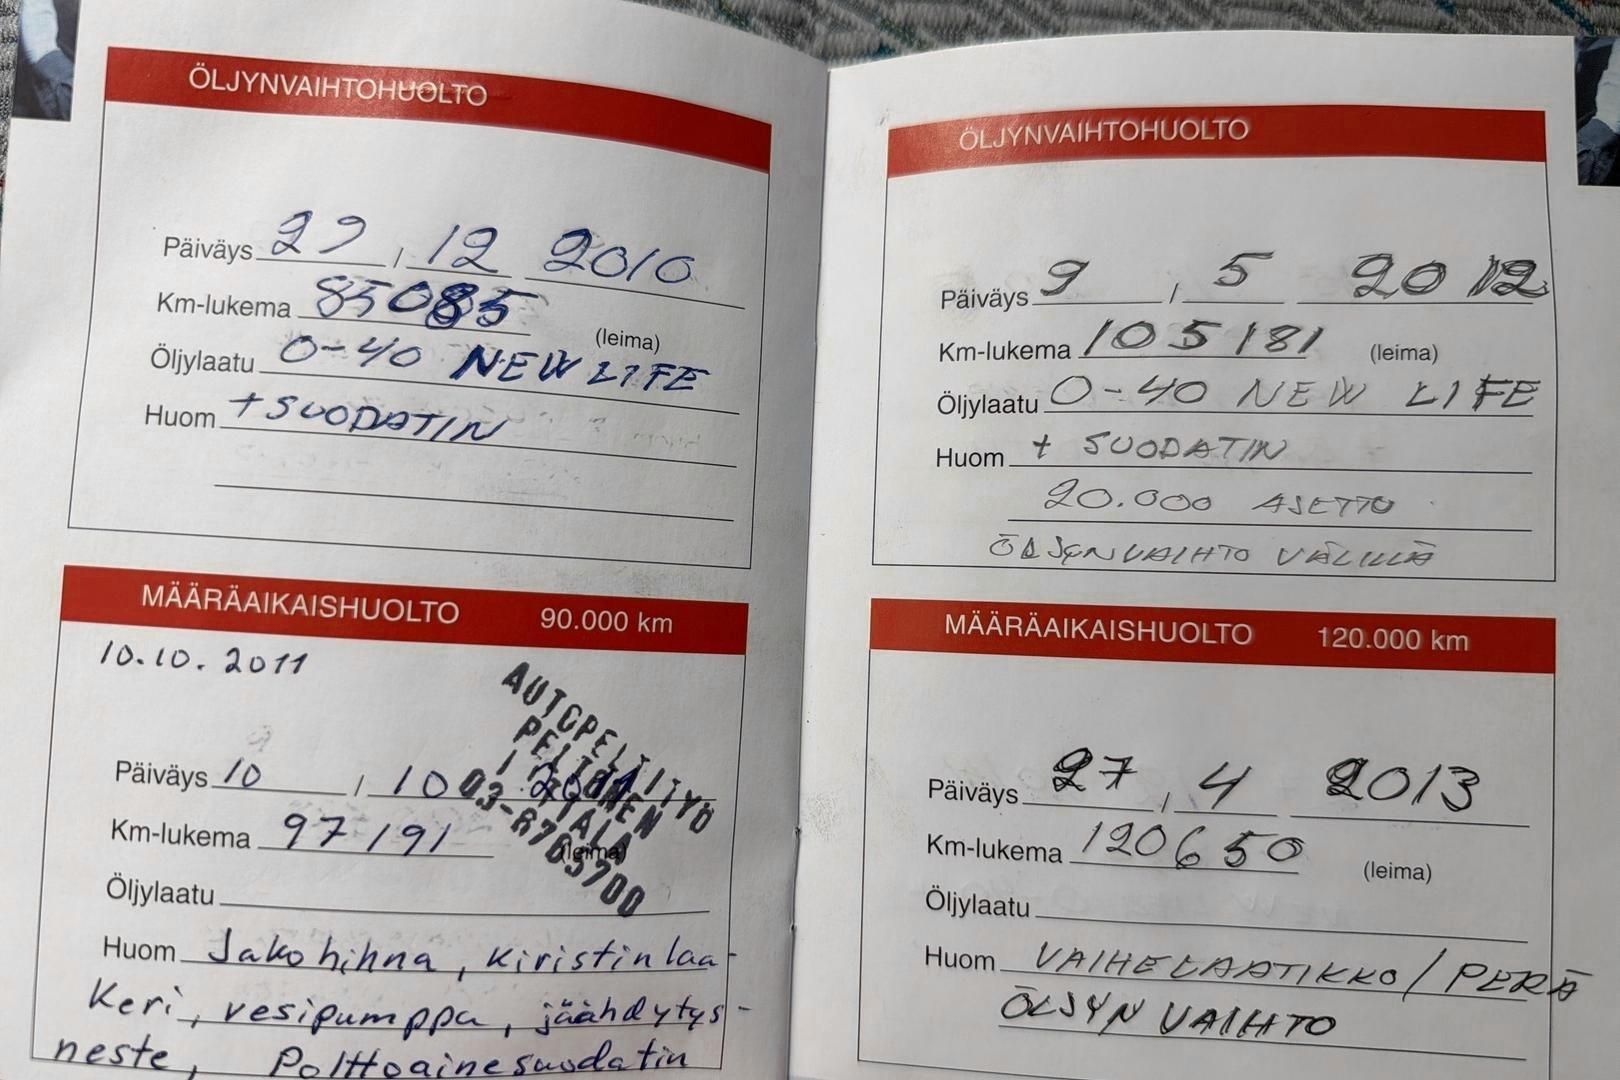 ÖLJYNVAIHTOHUOLTO
Päiväys 27 / 12 2010
Km-lukema 85085
(leima)
Öljylaatu 0-40 NEW LIFE
Huom + SUODATIN
MÄÄRÄAIKAISHUOLTO 90.000 km
10.10.2011
AUTOPELTITYÖ
PELTONEN
03-8765700
Päiväys 10 / 10 2011
Km-lukema 97191
(leima)
Öljylaatu
Huom Jakohihna, kiristinlaa-
keri, vesipumppa, jäähdytys-
neste, Polttoainesuodatin
ÖLJYNVAIHTOHUOLTO
Päiväys 9 / 5 2012
Km-lukema 105181 (leima)
Öljylaatu 0-40 NEW LIFE
Huom + SUODATIN
20.000 ASETTU
ÖLJYNVAIHTO VÄLILLÄ
MÄÄRÄAIKAISHUOLTO 120.000 km
Päiväys 27 / 4 2013
Km-lukema 120650
(leima)
Öljylaatu
Huom VAIHELAATIKKO / PERÄ
ÖLJYN VAIHTO